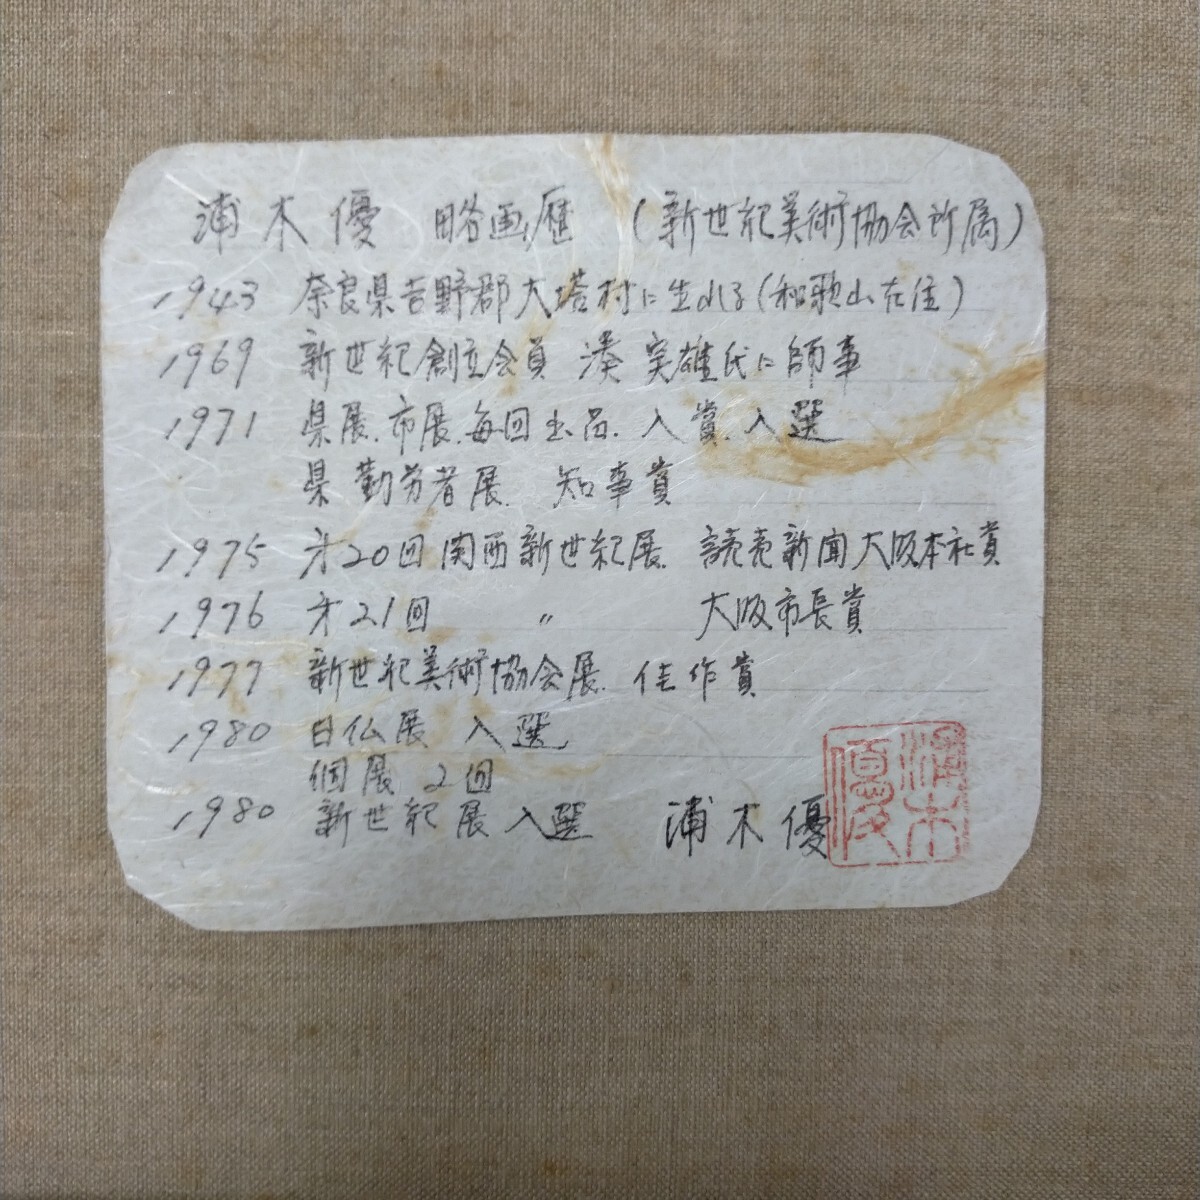 浦木優 略画歴 (新世紀美術協会所属)
1943 奈良県吉野郡大塔村に生れる(和歌山在住)
1969 新世紀創立会員 湊 実雄氏に師事
1971 県展、市展、毎回出品、入賞、入選
県勤労者展、知事賞
1975 才20回関西新世紀展、読売新聞大阪本社賞
1976 才21回 〃 大阪市長賞
1977 新世紀美術協会展、佳作賞
1980 日仏展 入選
個展 2回
1980 新世紀展入選 浦木優
浦木優